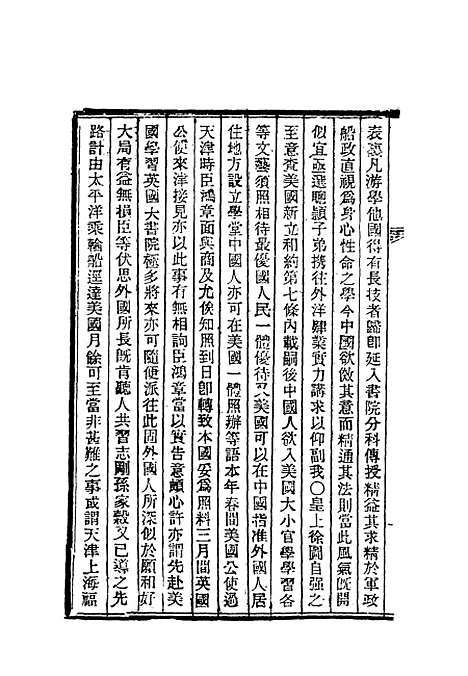 衰惡凡游學他國得有長技者歸卽延入書院分科傳授精益其求精於軍政
船政直視爲身心性命之學今中國欲倣其意而精通其法則當此風氣旣開
似宜亟選聰穎子弟攜往外洋肄業實力講求以仰副我〇皇上徐圖自强之
至意查美國新立和約第七條內載嗣後中國人欲入美國大小官學學習各
等文藝須照相待最優國人民一體優待又美國可以在中國指准外國人居
住地方設立學堂中國人亦可在美國一體照辦等語本年春間美國公使過
天津時臣鴻章面與商及尤俟知照到日卽轉致本國妥爲照料三月間英國
公使來津接見亦以此事有無相詢臣鴻章當以實告意頗心許亦謂先赴美
國學習英國大書院極多將來亦可隨便派往此固外國人所深似於願和好
大局有益無損臣等伏思外國所長旣肯聽人共習志剛孫家穀又已導之先
路計由太平洋乘輪船逕達美國月餘可至當非甚難之事或謂天津上海福